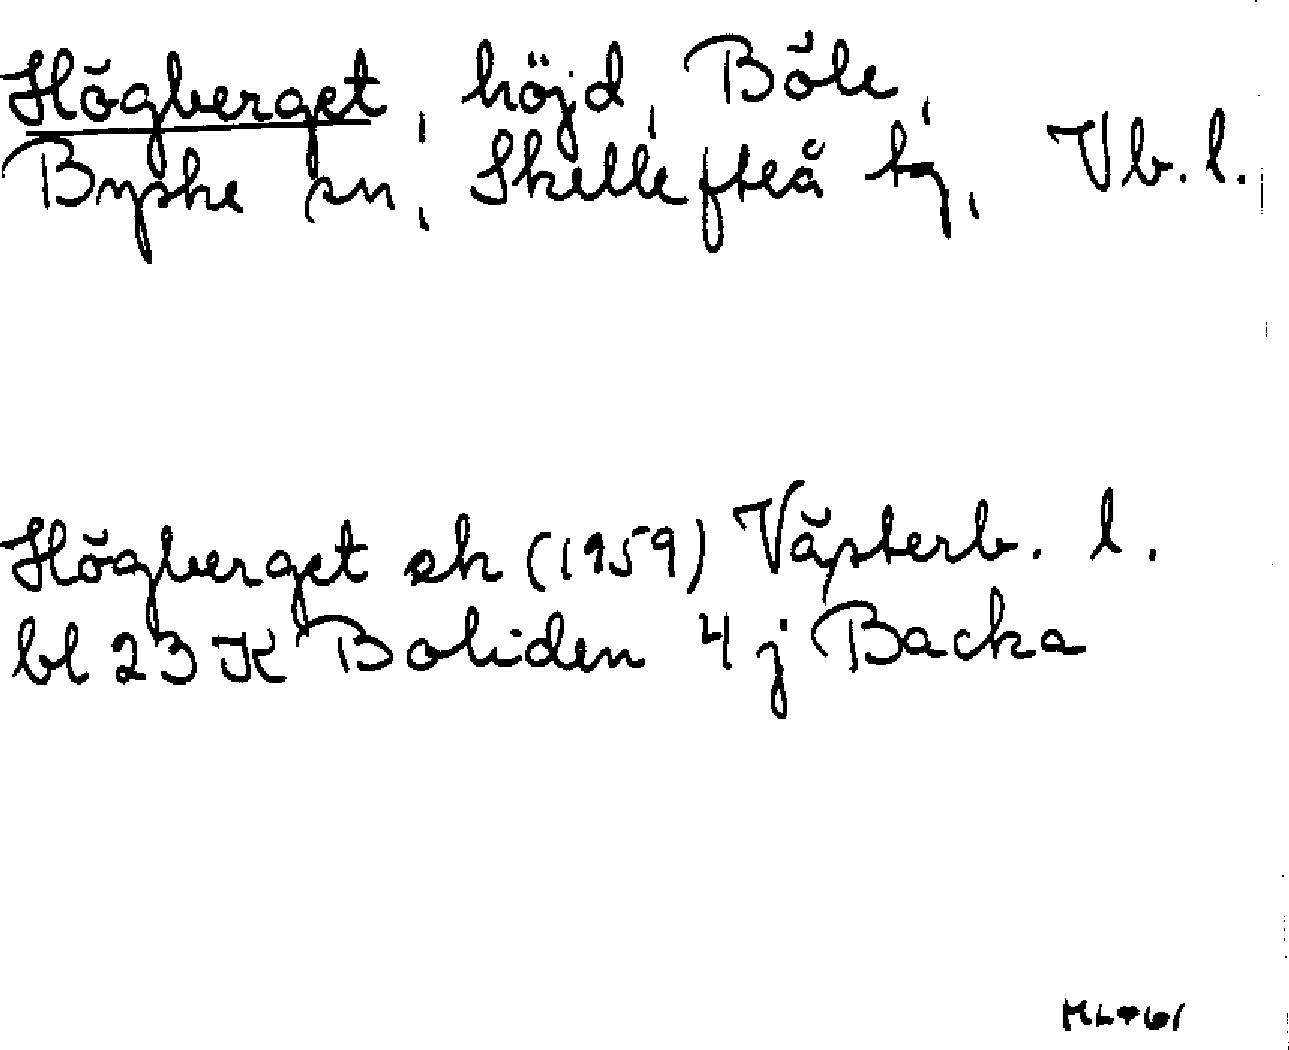 Högberget, höjd, Böle,
Byske sn, Skellefteå tg, Vb. l.
Högberget sk (1959) Västerb. l.
bl 23 K Boliden 4 j Backa